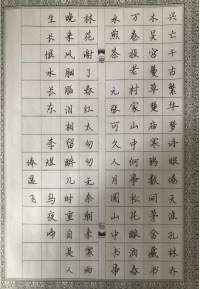 兴亡千古繁华梦诗眼倦天涯孔林乔
木吴宫蔓草楚庙寒鸦数间茅舍藏书
万卷投老村家山中何事松花酿酒春
水煎茶 元 张可久 人月圆 山中书事
林花谢了春红太匆匆无奈朝来寒雨
晚来风胭脂泪相留醉几时重自是人
生长恨水长东 李煜 乌夜啼